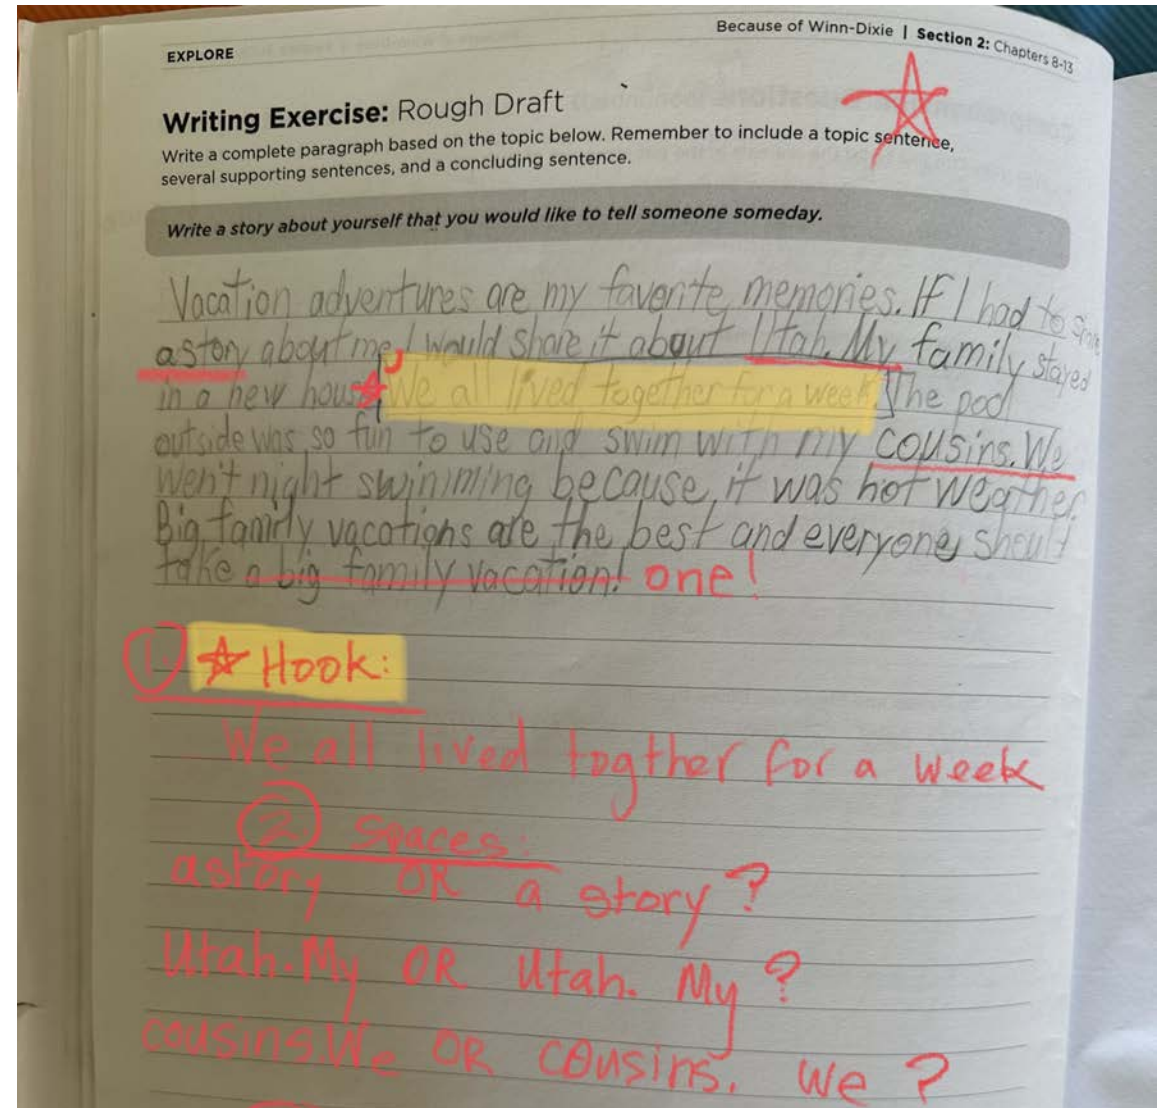 EXPLORE
Because of Winn-Dixie | Section 2: Chapters 8-13
Writing Exercise: Rough Draft
Write a complete paragraph based on the topic below. Remember to include a topic sentence,
several supporting sentences, and a concluding sentence.
Write a story about yourself that you would like to tell someone someday.
Vacation adventures are my favorite memories. If I had to share
astory about me, I would share it about Utah.My family stayed
in a new house. We all lived together for a week. The pool
outside was so fun to use and swim with my cousins.We
went night swimming because it was hot weather.
Big family vacations are the best and everyone should
take a big family vacation! one!
1. Hook:
We all lived togther for a week
2 Spaces:
astory OR a story?
Utah.My OR Utah. My?
cousins.We OR cousins. We?